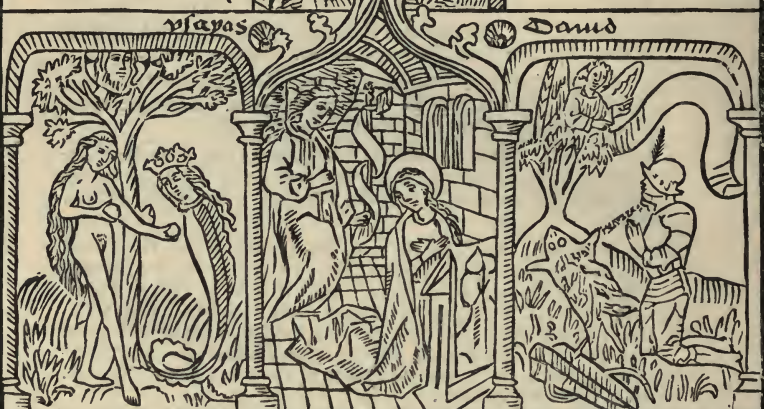 ysayas
Dauid